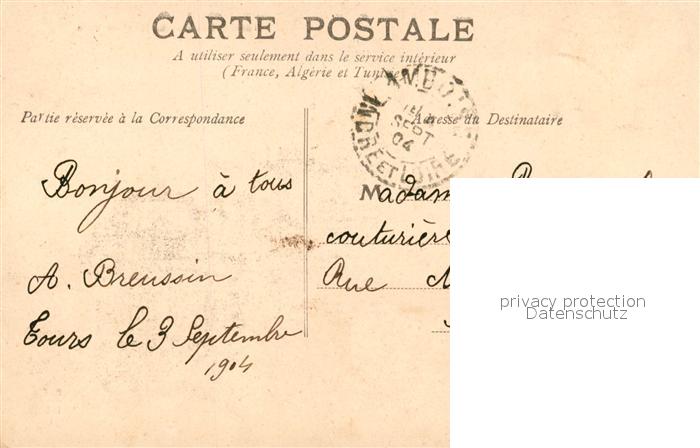 CARTE POSTALE
A utiliser seulement dans le service intérieur
(France, Algérie et Tunisie
Partie réservée à la Correspondance
Adresse du Destinataire
SEPT
04
INDRE ET LOIRE
Bonjour à tous
A. Breussin
Tours le 3 Septembre
1904
Madam
couturière
Rue
privacy protection
Datenschutz